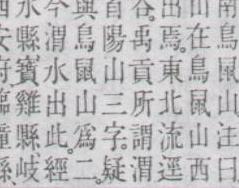 南鳥鼠山注曰
山在鳥鼠山西
出焉。東北流逕
谷。禹貢所謂渭
首陽山三字。疑
與鳥鼠山為二
今渭水出此。經
水縣寶雞縣岐
西安府臨潼縣